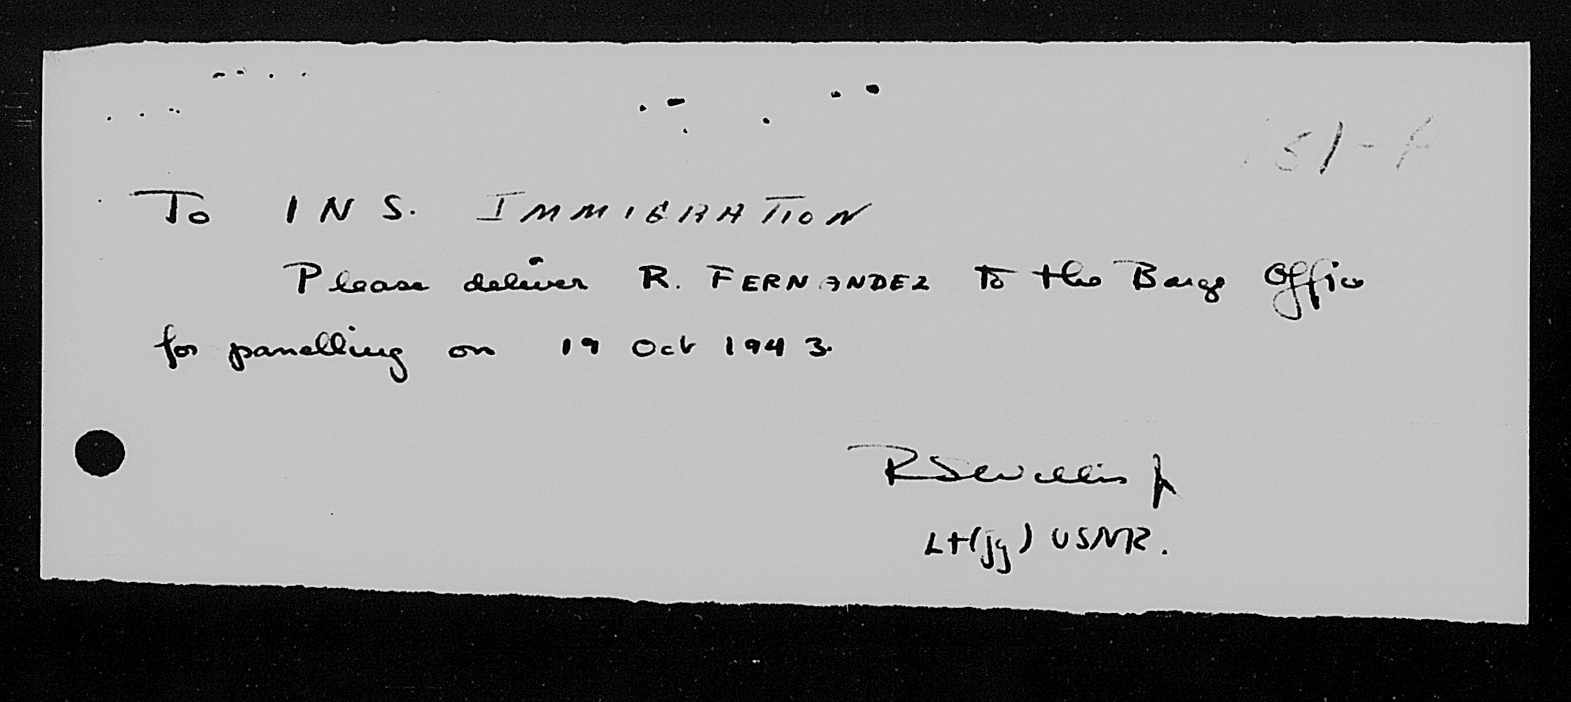 To INS. IMMIGRATION
Please deliver R. FERNANDEZ To the Barge Office
for panelling on 19 Oct 1943.
Jr
Lt(jg) USNR.